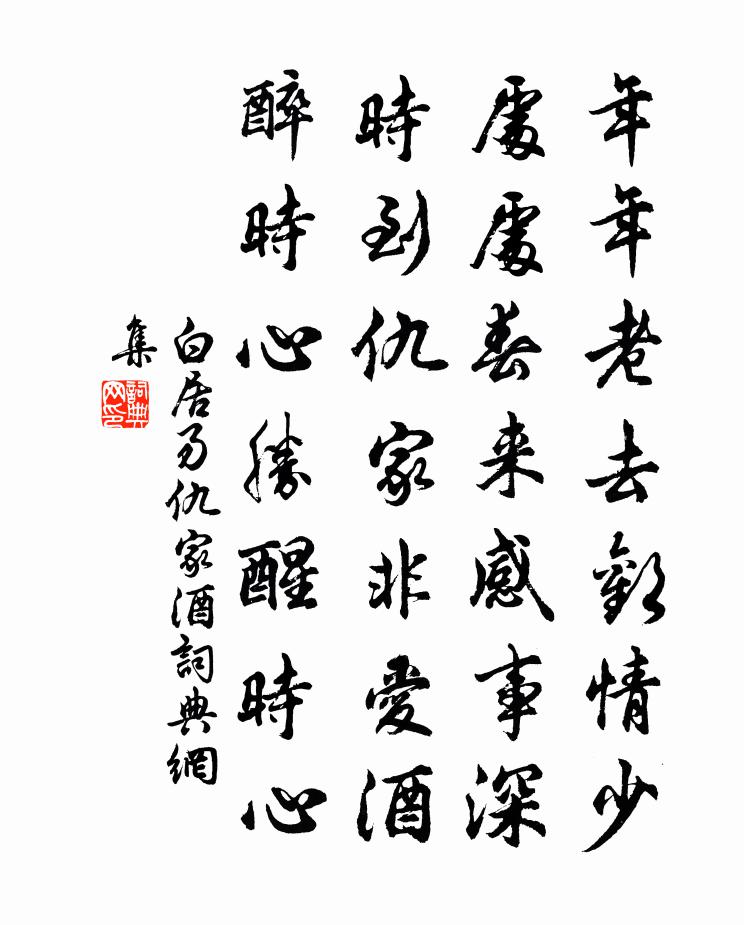 年年老去歡情少
處處春来感事深
時到仇家非愛酒
醉時心勝醒時心
白居易仇家酒詞典網
集
詞典
网印